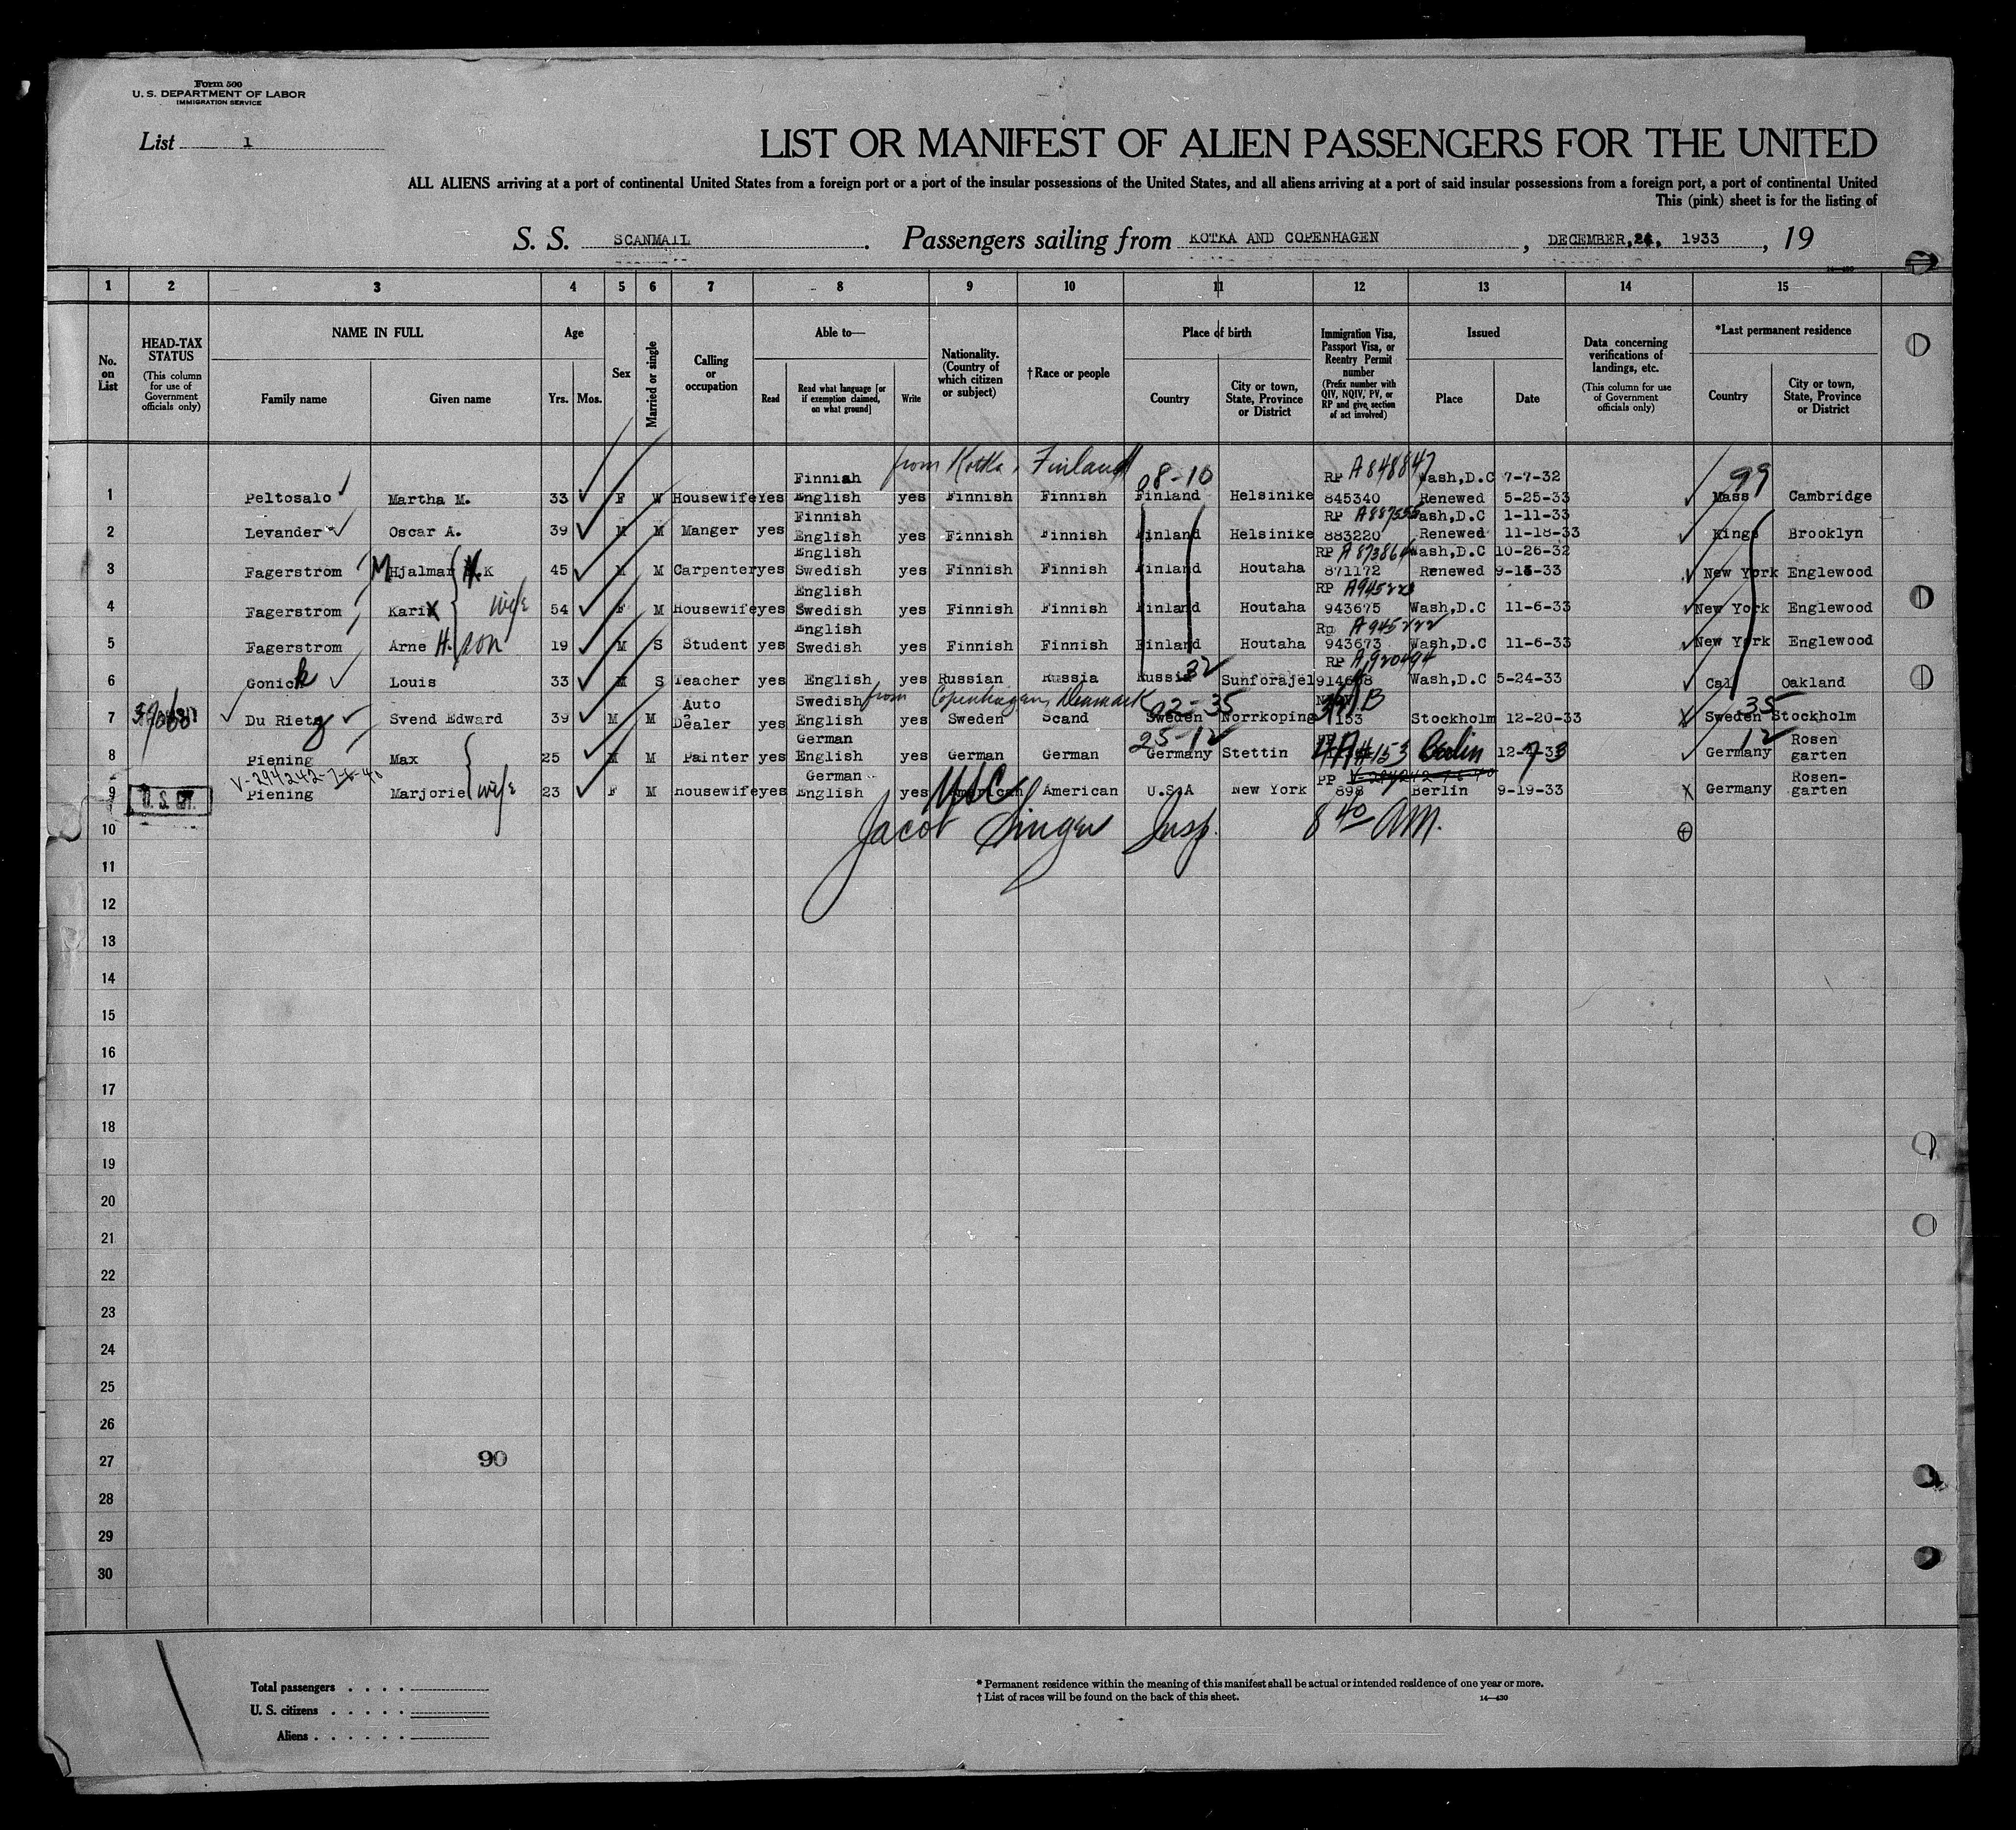 Form 500
U. S. DEPARTMENT OF LABOR
IMMIGRATION SERVICE
List 1
LIST OR MANIFEST OF ALIEN PASSENGERS FOR THE UNITED
ALL ALIENS arriving at a port of continental United States from a foreign port or a port of the insular possessions of the United States, and all aliens arriving at a port of said insular possessions from a foreign port, a port of continental United
This (pink) sheet is for the listing of
S. S. SCANMAIL. Passengers sailing from KOTKA AND COPENHAGEN, DECEMBER, 1933, 19
1 2 3 4 5 6 7 8 9 10 11 12 13 14 15
No. on List
HEAD-TAX STATUS
(This column for use of Government officials only)
NAME IN FULL
Family name Given name
Age
Yrs. Mos.
Sex
Married or single
Calling or occupation
Able to—
Read
Read what language [or if exemption claimed, on what ground]
Write
Nationality. (Country of which citizen or subject)
†Race or people
Place of birth
Country
City or town, State, Province or District
Immigration Visa, Passport Visa, or Reentry Permit number
(Prefix number with QIV, NQIV, PV, or RP and give section of act involved)
Issued
Place Date
Data concerning verifications of landings, etc.
(This column for use of Government officials only)
*Last permanent residence
Country
City or town, State, Province or District
from Kotka, Finland
08-10
99
Finnish RP A848847 Wash,D.C 7-7-32
1 Peltosalo Martha M. 33 F W Housewife Yes English yes Finnish Finnish Finland Helsinike 845340 Renewed 5-25-33 Mass Cambridge
Finnish RP Wash,D.C 1-11-33
2 Levander Oscar A. 39 M M Manger yes English yes Finnish Finnish Finland Helsinike 883220 Renewed 11-18-33 Kings Brooklyn
English RP Wash,D.C 10-26-32
3 Fagerstrom Hjalmar K 45 M M Carpenter yes Swedish yes Finnish Finnish Finland Houtaha 871172 Renewed New York Englewood
English RP
4 Fagerstrom Kari wife 54 F M Housewife yes Swedish yes Finnish Finnish Finland Houtaha 943675 Wash,D.C 11-6-33 New York Englewood
English A945222
5 Fagerstrom Arne H. son 19 M S Student yes Swedish yes Finnish Finnish Finland Houtaha 943673 Wash,D.C 11-6-33 New York Englewood
RP A920494
32
6 Gonick Louis 33 M S Teacher yes English yes Russian Russia Russia Sunforajel Wash,D.C 5-24-33 Cal Oakland
from Copenhagen, Denmark
02-35
35
Auto Swedish
7 Du Rietz Svend Edward 39 M M Dealer yes English yes Sweden Scand Sweden Norrkoping 153 Stockholm 12-20-33 Sweden Stockholm
German 25-12 12 Rosen
8 Piening Max 25 M M Painter yes English yes German German Germany Stettin Berlin Germany garten
V-294242-7-6-40
German PP Rosen-
9 U.S. Piening Marjorie wife 23 F M Housewife yes English yes American USC American U.S.A New York 898 Berlin 9-19-33 Germany garten
10 Jacob Singer Insp. 8 40 AM.
11
12
13
14
15
16
17
18
19
20
21
22
23
24
25
26
27 90
28
29
30
Total passengers
U. S. citizens
Aliens
* Permanent residence within the meaning of this manifest shall be actual or intended residence of one year or more.
† List of races will be found on the back of this sheet. 14—430